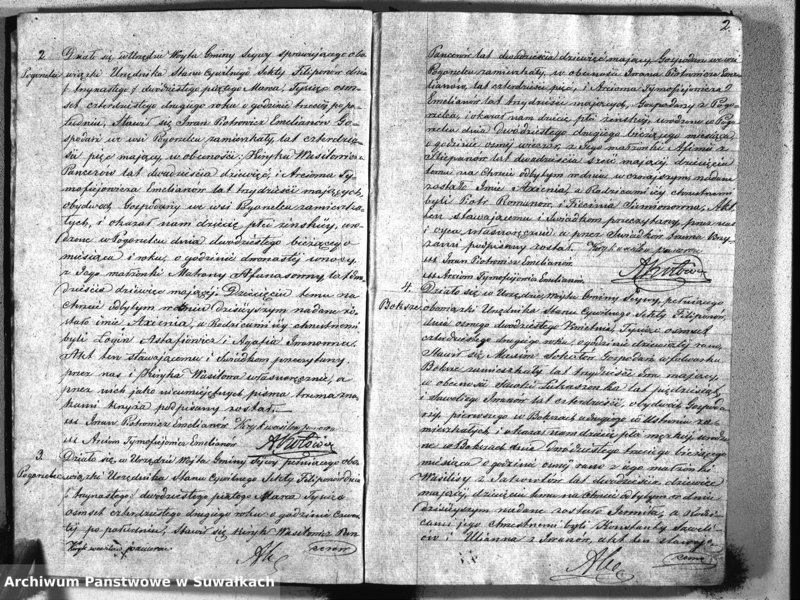 2
Działo się w Urzędzie Woyta Gminy Seywy sprawującego obo
Pogorzelec
wiązki Urzędnika Stanu Cywilnego Sekty Filiponów dnia
trzynastego / dwudziestego piątego Marca, Tysiąc osm
set czterdziestego drugiego roku o godzinie trzeciej po po
łudniu, Stawił się Iwan Piotrowicz Emelianów Go
spodarz we wsi Pogorzelcu zamieszkały, lat czterdzie
ści pięć mający, w obecności Kiryka Wasilowicza
Pancerów lat dwadzieścia dziewięć i Arcioma Ty
mofiejowicza Emelianów lat trzydzieści mających,
obydwóch Gospodarzy we wsi Pogorzelcu zamieszka
łych, i okazał nam dziecię płci żeńskiej, uro
dzone w Pogorzelcu dnia dwudziestego bieżącego
miesiąca i roku, o godzinie dwunastej w nocy
z Jego małżonki Matrony Afanasowny, lat dwa
dzieścia dziewięć mającej. Dziecięciu temu na
Chrzcie odbytym w dniu dzisiejszym nadane zo
stało imie Axenia, a Rodzicami jej chrzestnemi
byli Login Astafiowicz i Agafia Iwanowna.
Akt ten stawającemu i Świadkom przeczytany,
przez nas i Kiryka Wasilowa własnoręcznie, a
przez nich jako nieumiejących pisma trzema zna
kami krzyża podpisany został.
Iwan Piotrowicz Emelianów
Arciom Tymofiejowicz Emelianów
3.
Działo się w Urzędzie Wojta Gminy Seywy pełniącego obo
Pogorzelec
wiązki Urzędnika Stanu Cywilnego Sekty Filiponów dnia
trzynastego / dwudziestego piątego Marca Tysiąc
osmset czterdziestego drugiego roku o godzinie czwar
tej po południu, Stawił się Kiryk Wasilowicz Pan
cerów
2
Pancerów lat dwadzieścia dziewięć mający, Gospodarz we wsi
Pogorzelcu zamieszkały, w obecności Iwana Piotrowicza Eme
lianów, lat czterdzieści pięć, i Arcioma Tymofiejowicza
Emelianów lat trzydzieści mających, Gospodarzy z Pogo
rzelca, i okazał nam dziecię płci żeńskiej, urodzone w Pogo
rzelcu dnia Dwudziestego drugiego bieżącego miesiąca
o godzinie osmej wieczór, z Jego małżonki Afimii z
Stiepanów lat dwadzieścia sześć mającej, dziecięciu
temu na Chrzcie odbytym w dniu wczorajszym nadane
zostało Imie Axienia, a Rodzicami jej chrzestnemi
byli Piotr Romanów i Fiecinia Simionowna, Akt
ten stawającemu i Świadkom przeczytany, przez nas
i Ojca własnoręcznie a przez Świadków trzema Krzy
żami podpisany został.
Iwan Piotrowicz Emelianów
Arciom Tymofiejowicz Emelianów
4.
Działo się w Urzędzie Wojta Gminy Seywy, pełniącego
Boksze
obowiązki Urzędnika Stanu Cywilnego Sekty Filiponów,
dnia osmego dwudziestego Kwietnia, Tysiąc osmset
czterdziestego drugiego roku, o godzinie dziewiątej rano,
Stawił się Maxim Sokołow Gospodarz w folwarku
Bokszе zamieszkały lat trzydzieści osm mający,
w obecności lat pięćdziesiąt
i Iwanów lat czterdzieści, obydwóch Gospoda
rzy pierwszego w Bokszach a drugiego w za
mieszkałych i okazał nam dziecię płci męzkiej urodzo
ne w Bokszach dnia trzeciego bieżącego
miesiąca o godzinie osmej rano z jego małżonki
Wasilisy z lat dwadzieścia dziewięć
mającej, dziecięciu temu na Chrzcie odbytym w dniu
dzisiejszym nadane zostało a Rodzi
cami jego chrzestnemi byli Konstanty Sawelie
iów i Ulianna z Iwanów, akt ten stawają
cemu
Archiwum Państwowe w Suwałkach